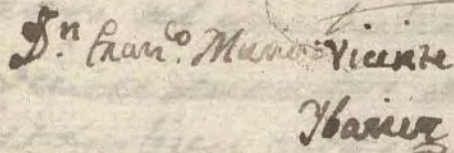 Dn Franco Muno Vicente
Ybañez